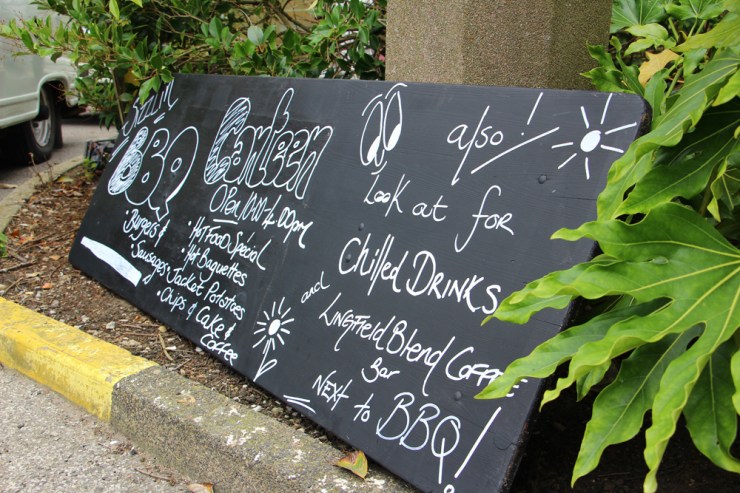 BBQ
• Burgers &
• Sausages
Canteen
OPEN 10AM-4.00pm
• Hot Food Special
• Hot Baguettes
• Jacket Potatoes
• Chips & Cake &
Coffee
also!
Look out for
Chilled DRINKS
and LINGFIELD Blend COFFEE
Bar
NEXT to BBQ!